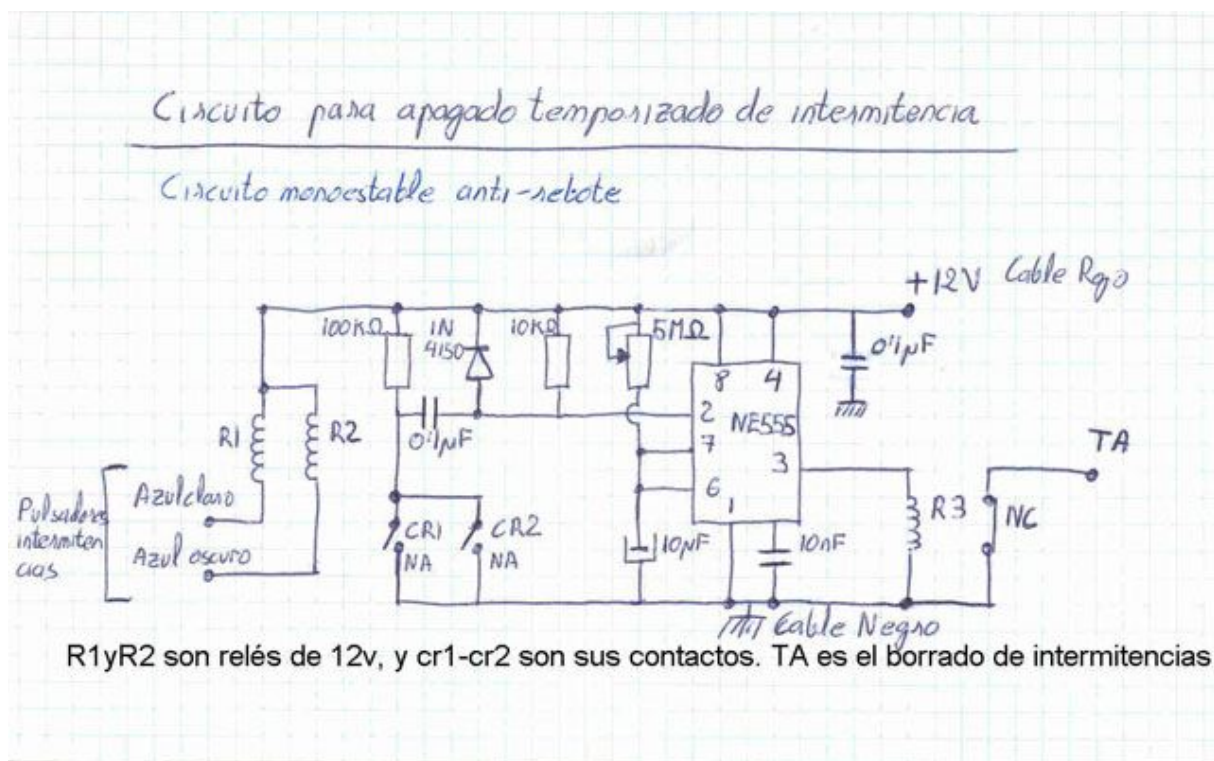 Circuito para apagado temporizado de intermitencia
Circuito monoestable anti-rebote
+12V Cable Rojo
100KΩ
1N
4150
10KΩ
5MΩ
0'1µF
8 4
R1
R2
0'1µF
2
NE555
7
3
TA
6
Pulsadores
intermiten
cias
Azul claro
CR1
CR2
1
R3
NC
10µF
10nF
Azul oscuro
NA
NA
Cable Negro
R1yR2 son relés de 12v, y cr1-cr2 son sus contactos. TA es el borrado de intermitencias